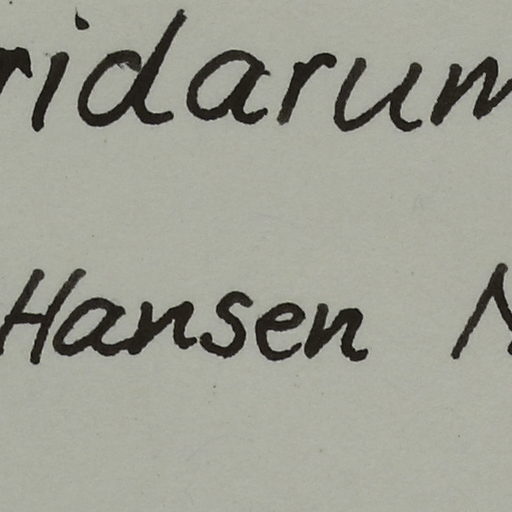 ridarum
Hansen